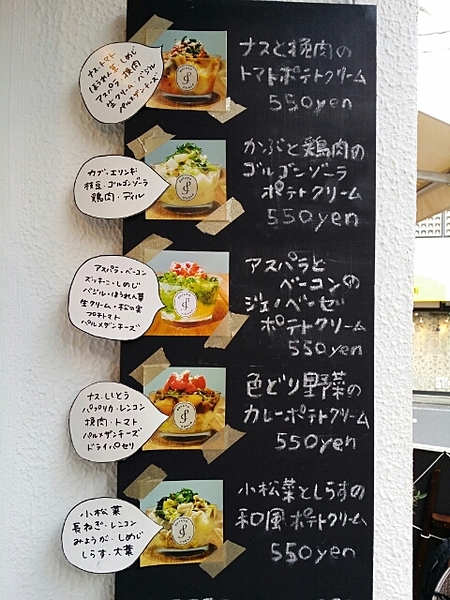 ナス・トマト
ほうれん草・しめじ
アスパラ・挽肉
生クリーム・バジル
パルメザンチーズ
ナスと挽肉の
トマトポテトクリーム
550yen
カブ・エリンギ
枝豆・ゴルゴンゾーラ
鶏肉・ディル
かぶと鶏肉の
ゴルゴンゾーラ
ポテトクリーム
550yen
アスパラ・ベーコン
ズッキーニ・しめじ
バジル・ほうれん草
生クリーム・松の実
プチトマト
パルメザンチーズ
アスパラと
ベーコンの
ジェノベーゼ
ポテトクリーム
550yen
ナス・ししとう
パプリカ・レンコン
挽肉・トマト
パルメザンチーズ
ドライパセリ
色どり野菜の
カレーポテトクリーム
550yen
小松菜
長ねぎ・レンコン
みょうが・しめじ
しらす・大葉
小松菜としらすの
和風ポテトクリーム
550yen